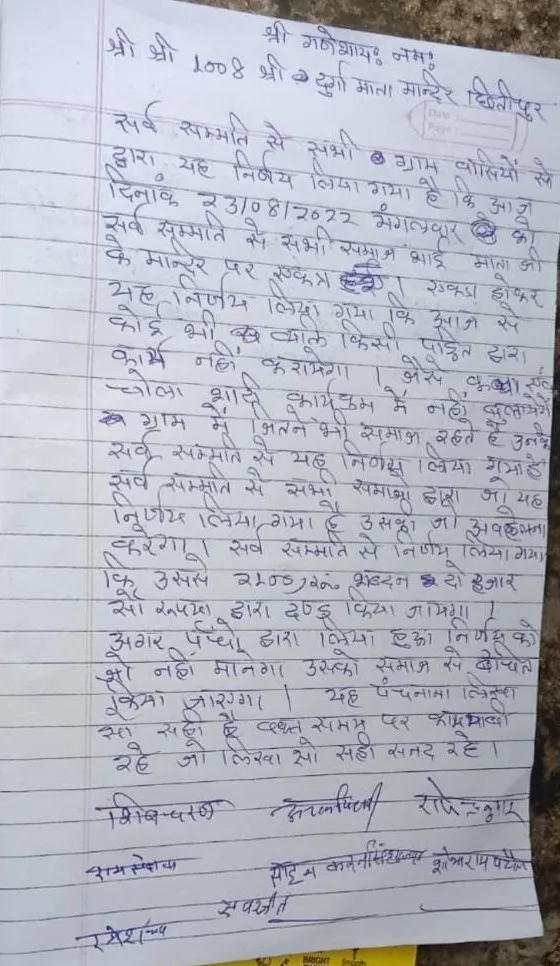 श्री गणेशाय: नम:
श्री श्री 1008 श्री दुर्गा माता मन्दिर छितीपुर
सर्व सम्मति से सभी ग्राम वासियों से
द्वारा यह निर्णय लिया गया है कि आज
दिनांक 23/08/2022 मंगलवार को
सर्व सम्मति से सभी समाज भाई माता जी
के मन्दिर पर एकत्र । एकत्र होकर
यह निर्णय लिया गया कि आज से
कोई भी किसी पंडित द्वारा
कार्य नहीं करायेगा । जैसे कथा एवं
चोला शादी कार्यक्रम में नहीं बुलायेंगे
ग्राम में जितने भी समाज रहते है उनके
सर्व सम्मति से यह निर्णय लिया गया है
सर्व सम्मति से सभी समाजो द्वारा जो यह
निर्णय लिया गया है उसका जो अवहेलना
करेगा । सर्व सम्मति से निर्णय लिया गया
कि उससे दो हजार
सौ रूपया द्वारा दण्ड किया जायेगा ।
अगर पंचो द्वारा लिया हुआ निर्णय को
भी नहीं मानेगा उसको समाज से वंचित
किया जाएगा । यह पंचनामा लिखा
सो सही है वक्त समय पर काम आवे
रहे जो लिखा सो सही सनद रहे ।
शिवचरन
रामसेवक